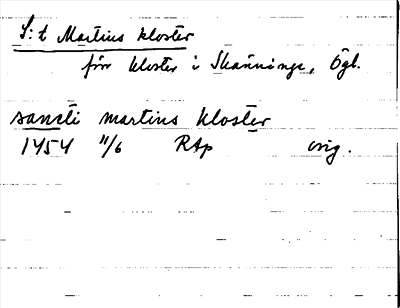 S:t Martins kloster
förr kloster i Skänninge, Ögl.
sancti martins kloster
1454 11/6 RAp orig.